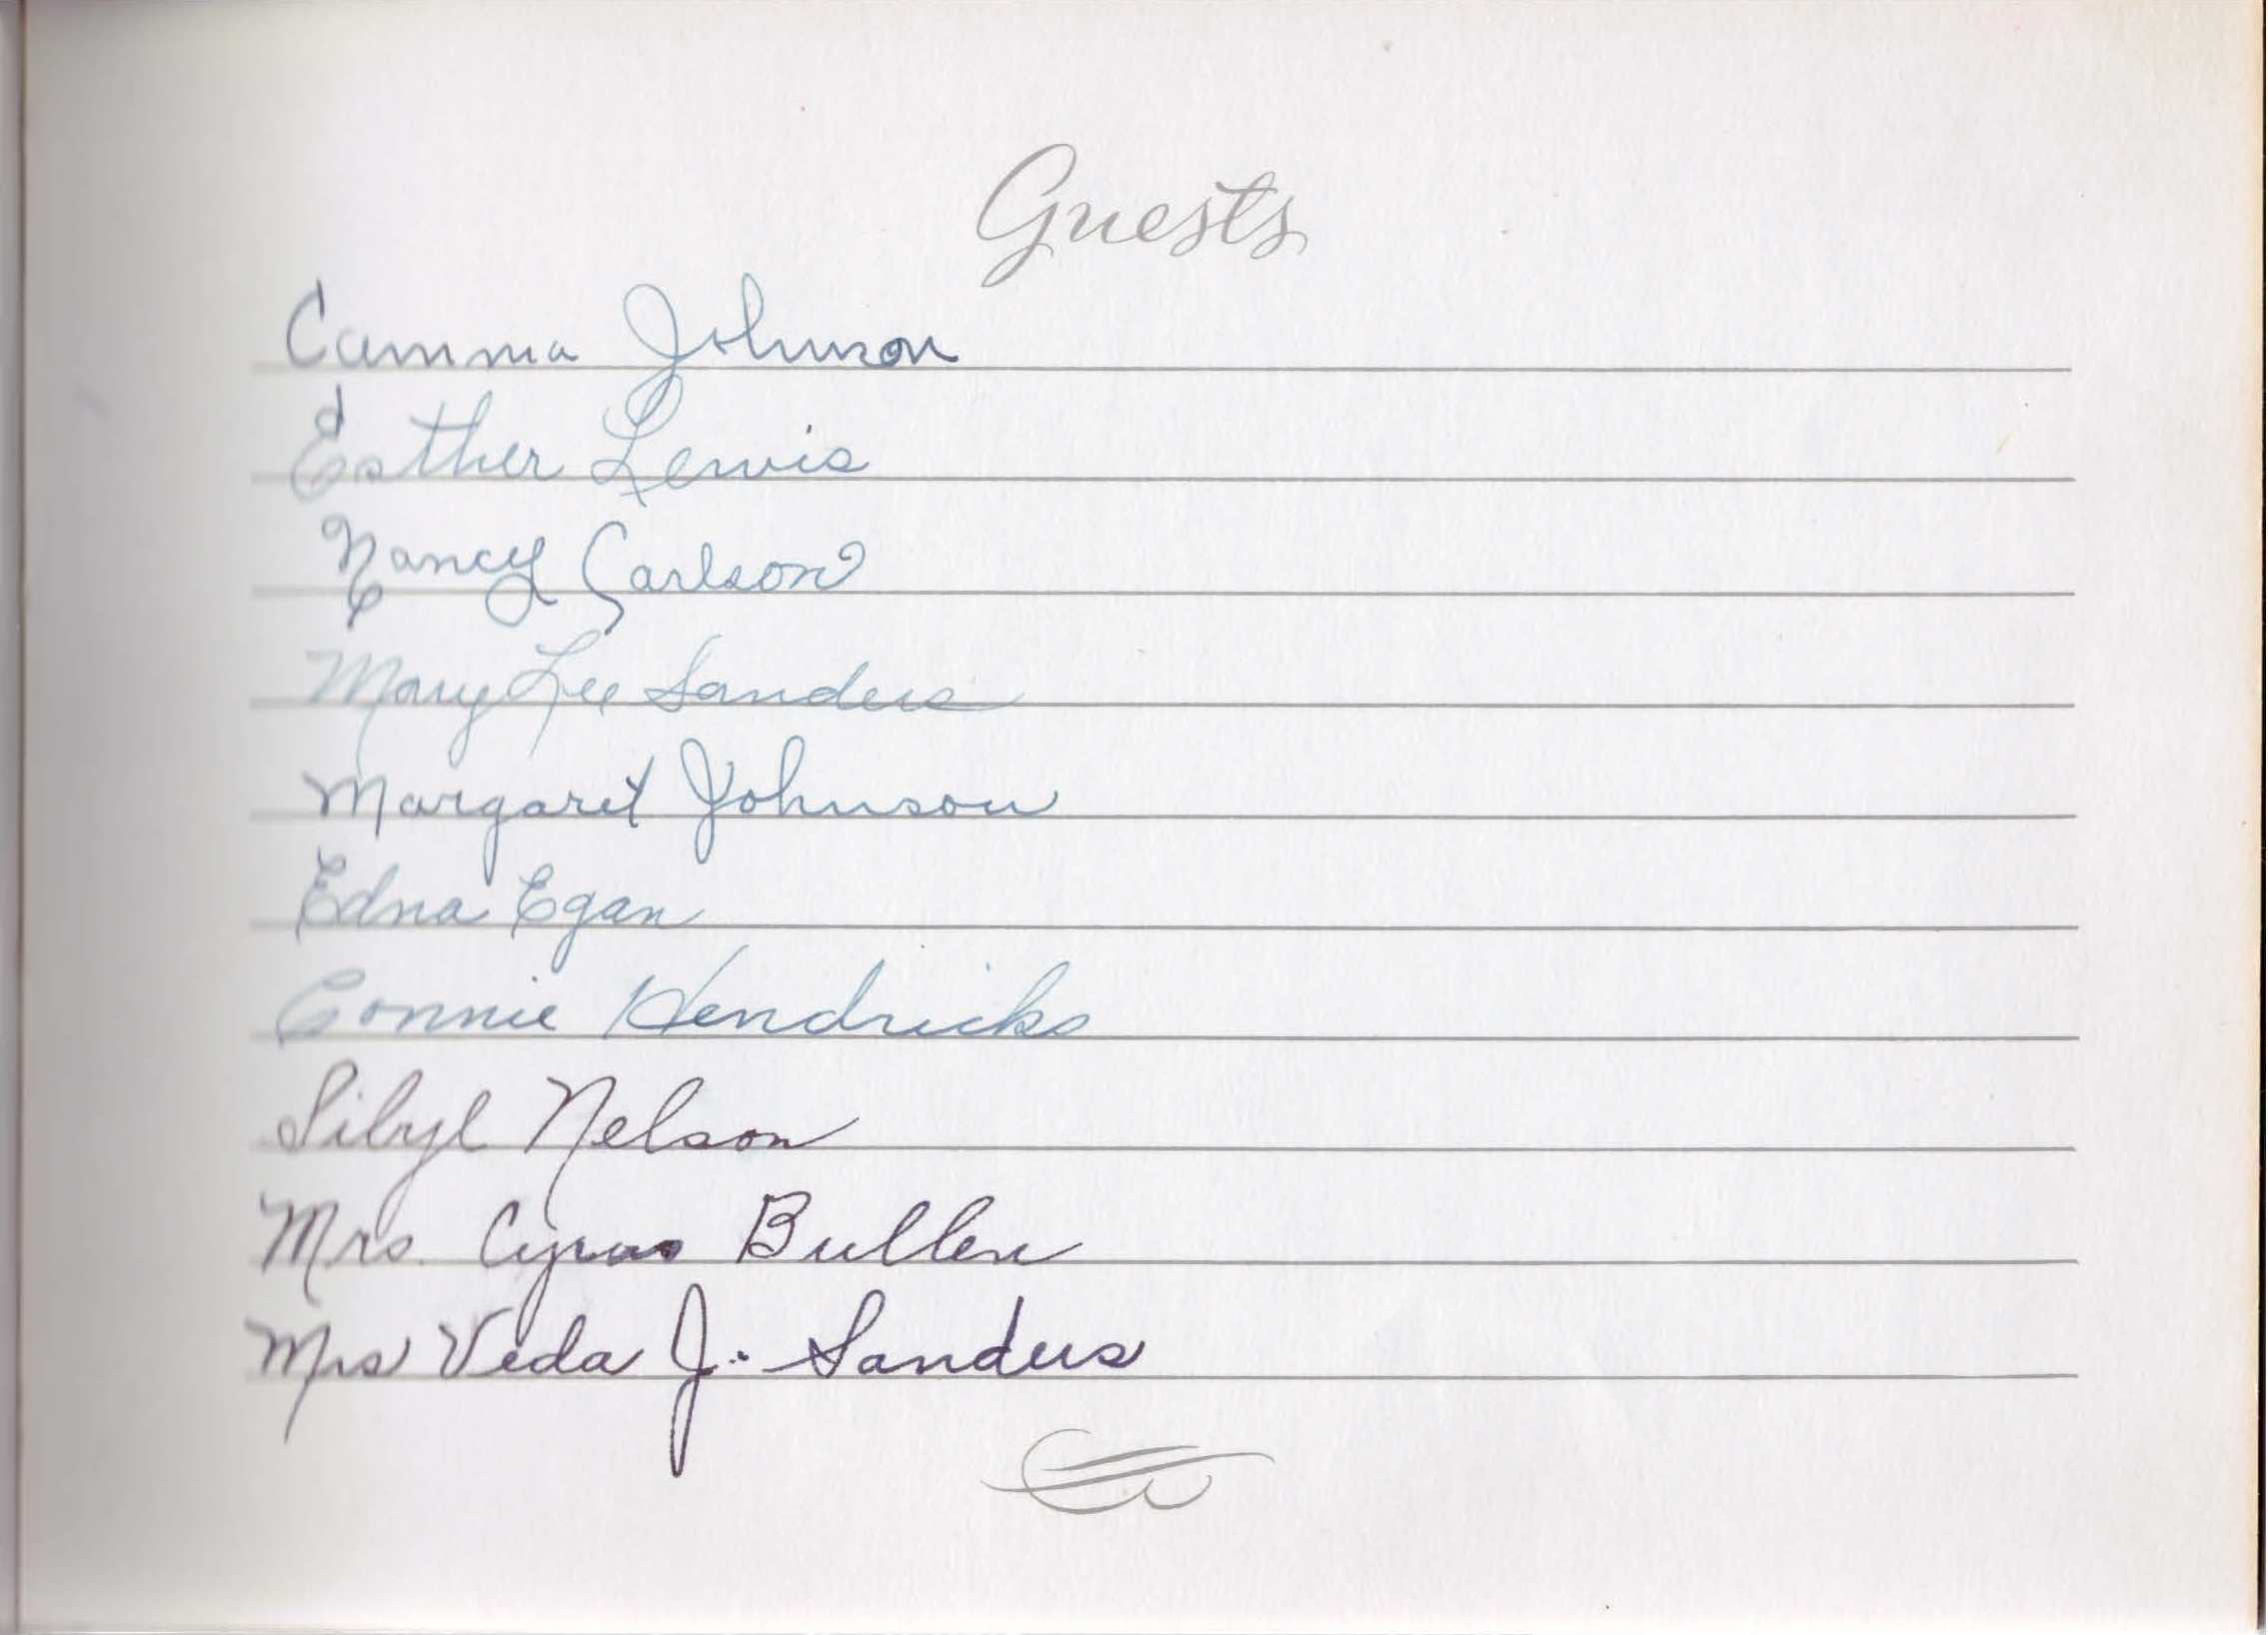 Guests
Camma Johnson
Esther Lewis
Nancy Carlson
Mary Lee Sanders
Margaret Johnson
Edna Egan
Connie Hendricks
Sibyl Nelson
Mrs. Cyrus Bullen
Mrs Veda J. Sanders